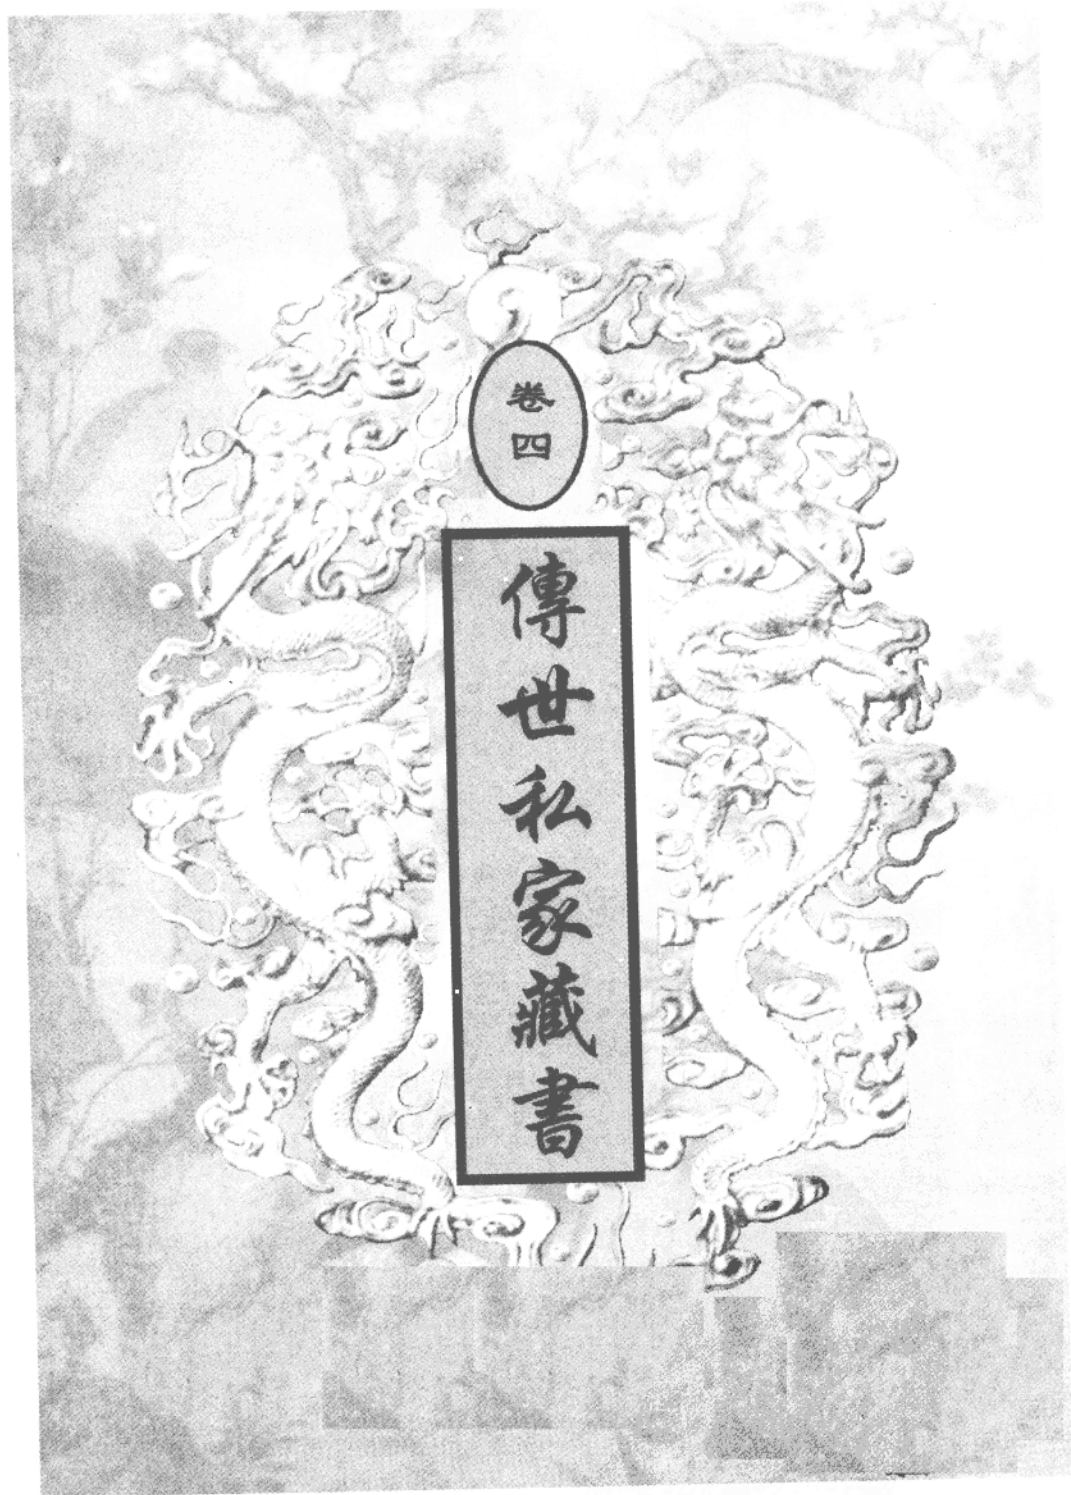 卷四
傳世私家藏書